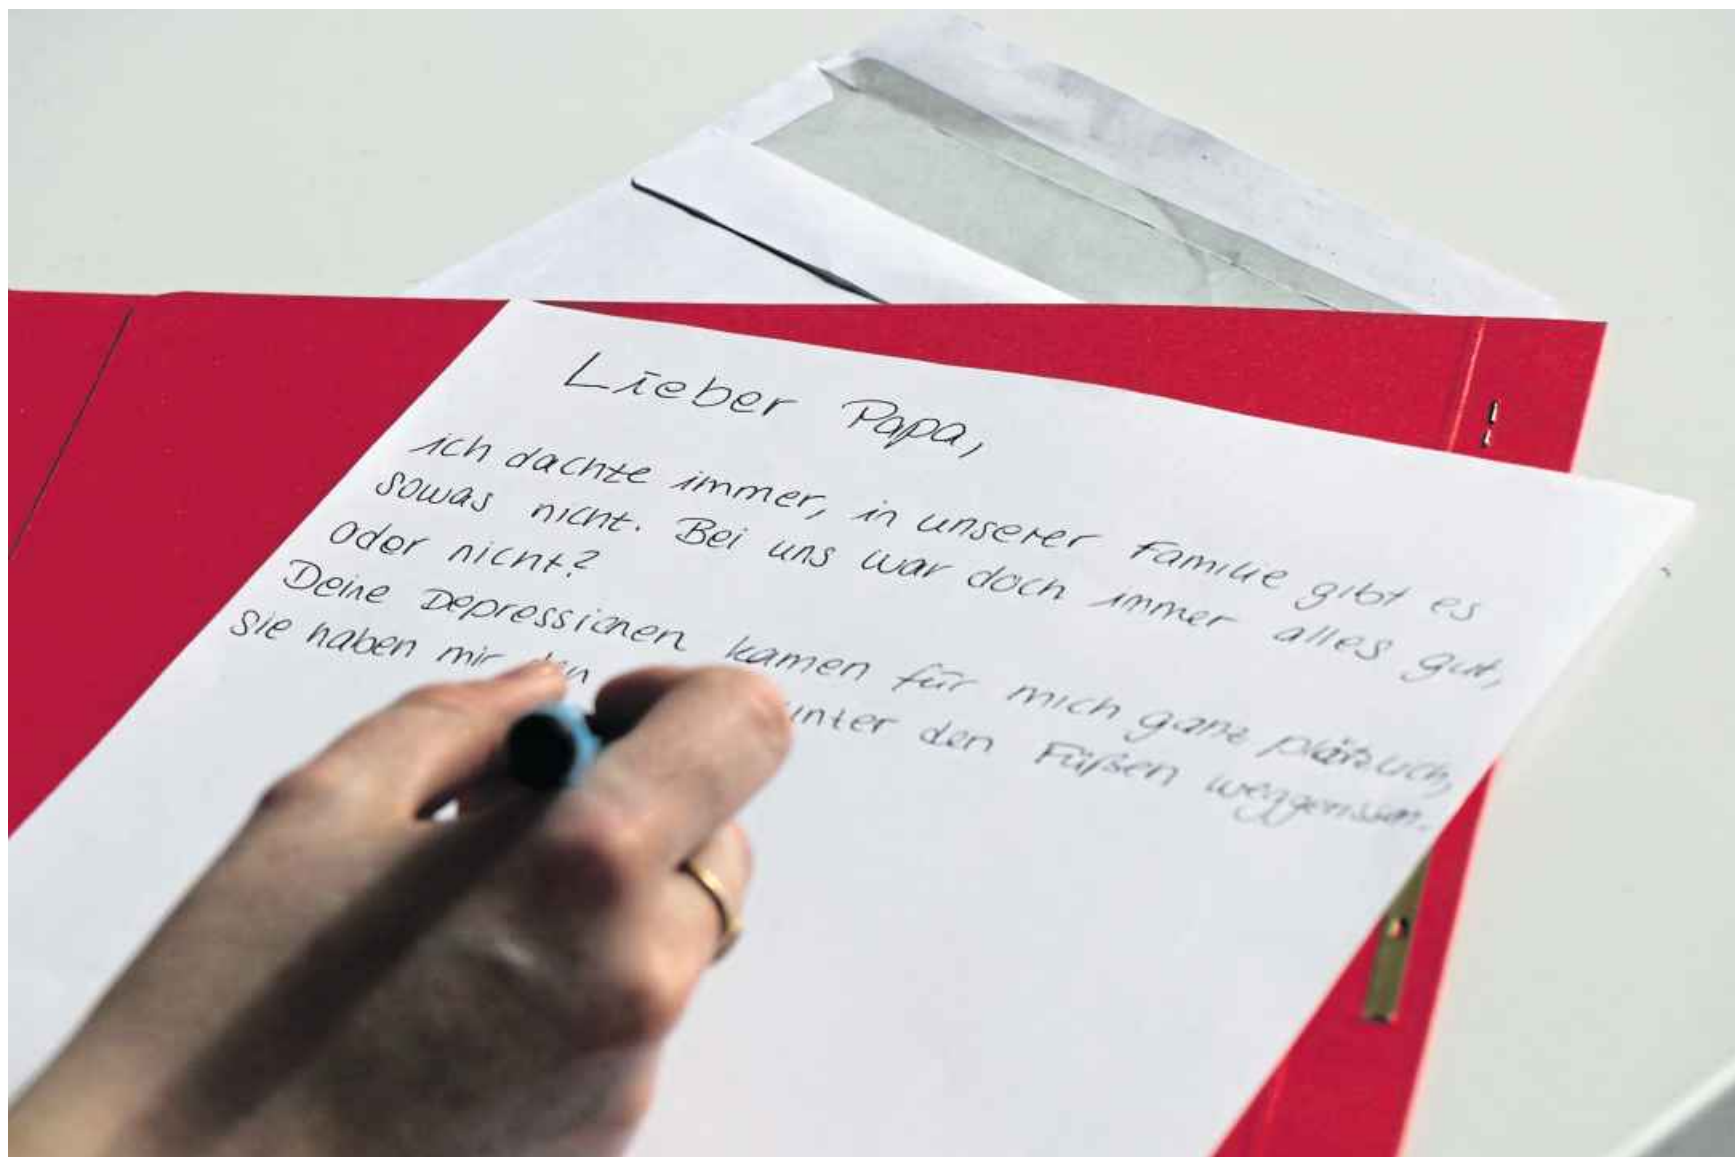 Lieber Papa,
ich dachte immer, in unserer Familie gibt es
sowas nicht. Bei uns war doch immer alles gut,
oder nicht?
Deine Depressionen kamen für mich ganz plötzlich,
sie haben mir den unter den Füßen weggerissen.